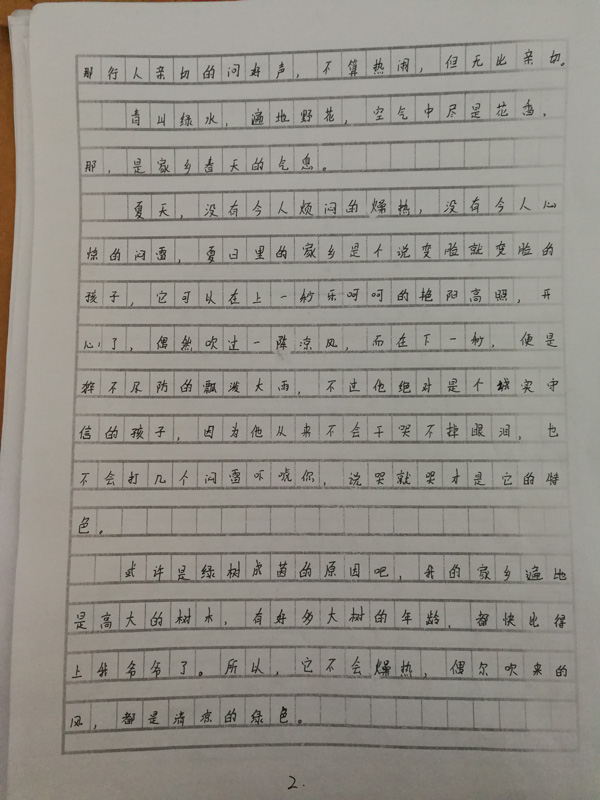 那行人亲切的问好声，不算热闹，但无比亲切。
青山绿水，遍地野花，空气中尽是花香，
那，是家乡春天的气息。
夏天，没有令人烦闷的燥热，没有令人心
惊的闷雷，夏日里的家乡是个说变脸就变脸的
孩子，它可以在上一秒乐呵呵的艳阳高照，开
心了，偶然吹过一阵凉风，而在下一秒，便是
猝不及防的飘泼大雨，不过他绝对是个诚实守
信的孩子，因为他从来不会干哭不掉眼泪，也
不会打几个闷雷吓唬你，说哭就哭才是它的特
色。
或许是绿树成茵的原因吧，我的家乡遍地
是高大的树木，有好多大树的年龄，都快比得
上我爷爷了。所以，它不会燥热，偶尔吹来的
风，都是清凉的绿色。
2.